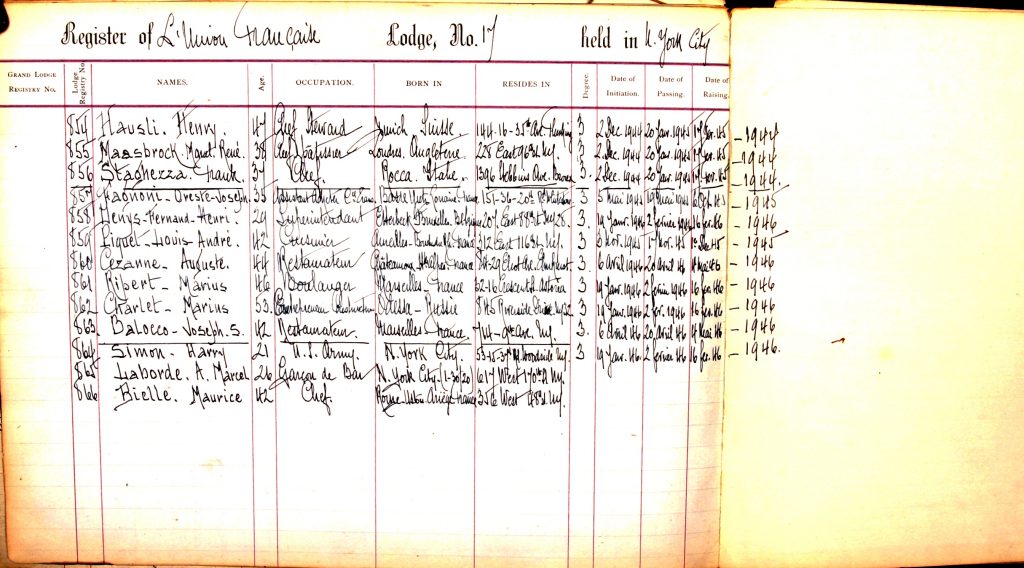 Register of L'Union Française Lodge, No. 17 held in N. York City
GRAND LODGE REGISTRY NO. Lodge Registry No. NAMES. Age. OCCUPATION. BORN IN RESIDES IN Degree. Date of Initiation. Date of Passing. Date of Raising.
854 Hausli. Henry. 47 Chef Steward Zurich Suisse. 144-16-35th Ave. Flushing 3 2 Dec. 1944 20 Jan. 1945 - 1944
855 Maasbrock. Marcel. René. 38 Chef Londres. Angleterre. 228 East 96 St. N.Y. 3 2 Dec. 1944 20 Jan. 1945 - 1944
856 Staghezza. Frank. 37 Chef. Rocca. Italie. 1396 Ave. Bronx 3 2 Dec. 1944 20 Jan. 1945 - 1944.
857 Oreste-Joseph. 35 France 151-36-20th 3 5 Mai 1945 19 Mai 1945 - 1945
858 Henys-Fernand-Henri 29 Superintendant Etterbeck Bruxelles. Belgique 207. East 88 St. N.Y. 28. 3 19 Janv. 1946 2 février 1946 16 fev. 46 - 1946
859 Piquet-Louis-André. 42 Cuisinier France 312 East 116 St. N.Y. 3 3 Nov. 1945 17 Nov. 45 1 Dec 45 - 1945
860 Cezanne- Auguste. 44 Restaurateur France 84-29 Eliot Ave. Elmhurst. 3 6 Avril 1946 20 Avril 46 4 Mai 46 - 1946
861 Ribert- Marius 46 Boulanger Marseilles- France 32-16 Crescent St. Astoria 3 19 Janv. 1946 2 février 1946 16 fev. 46 - 1946
862 Charlet- Marius 53. Entrepreneur Construction Odessa- Russie 845 Riverside Drive N.Y. 32 3 19 Janv. 1946 2 février 1946 16 fev. 46 - 1946
863 Balocco-Joseph. S. 42 Restaurateur. Marseilles- France. 714-9th Ave. N.Y. 3. 6 Avril 46 20 Avril 46 4 Mai 46 - 1946
864 Simon- Harry 21 U.S. Army. N. York City. 53-45-37th Woodside N.Y. 3 19 Janv. 46 2 février 46 16 fev. 46 - 1946.
865 Laborde. A. Marcel 26 Garçon de Bar N. York City. (1-30/20) 617 West 170 St N.Y.
866 Bielle. Maurice 42 Chef. Ariège-France 356 West 48 St. N.Y.